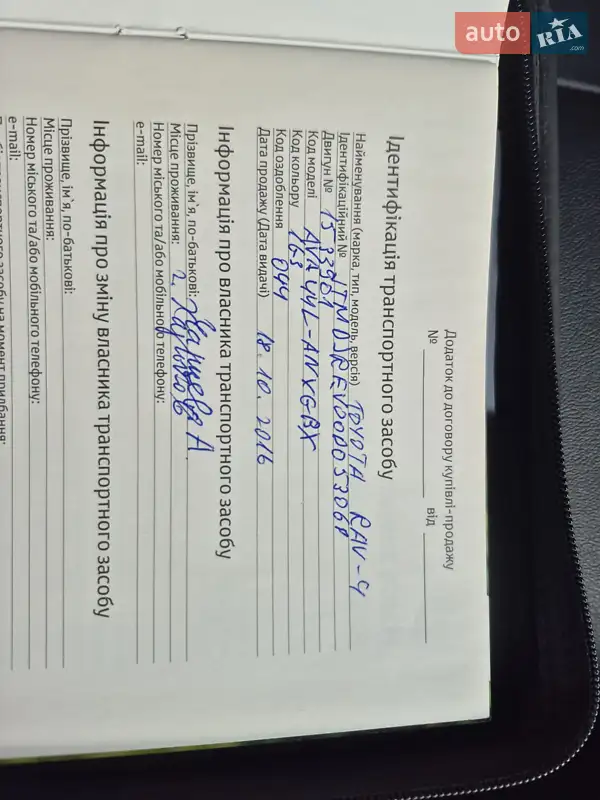 auto RIA.com
Додаток до договору купівлі-продажу
№ ____ від ____
Ідентифікація транспортного засобу
Найменування (марка, тип, модель, версія) TOYOTA RAV-4
Ідентифікаційний № JTMDJREV00D053068
Двигун №
Код моделі AVA44L-ANXGBX
Код кольору 1G3
Код оздоблення 044
Дата продажу (Дата видачі) 18.10.2016
Інформація про власника транспортного засобу
Прізвище, ім`я, по-батькові: А.
Місце проживання: г. Харьков
Номер міського та/або мобільного телефону:
e-mail:
Інформація про зміну власника транспортного засобу
Прізвище, ім`я, по-батькові:
Місце проживання:
Номер міського та/або мобільного телефону:
e-mail:
транспортного засобу на момент придбання: